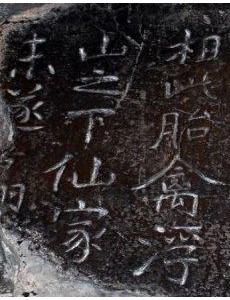 相此胎禽浮
山之下仙家
未遂